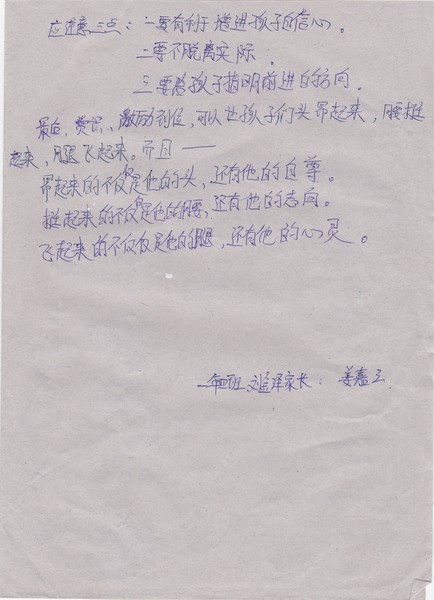 应注意三点：一要有利于增进孩子自信心。
二要不脱离实际
三要为孩子指明前进的方向。
最后，赏识、激励到位，可以让孩子们头昂起来，腰挺
起来，腿飞起来。而且——
昂起来的不仅仅是他的头，还有他的自尊。
挺起来的不仅仅是他的腰，还有他的志向。
飞起来的不仅仅是他的腿，还有他的心灵。
一年四班 刘泽家长：姜